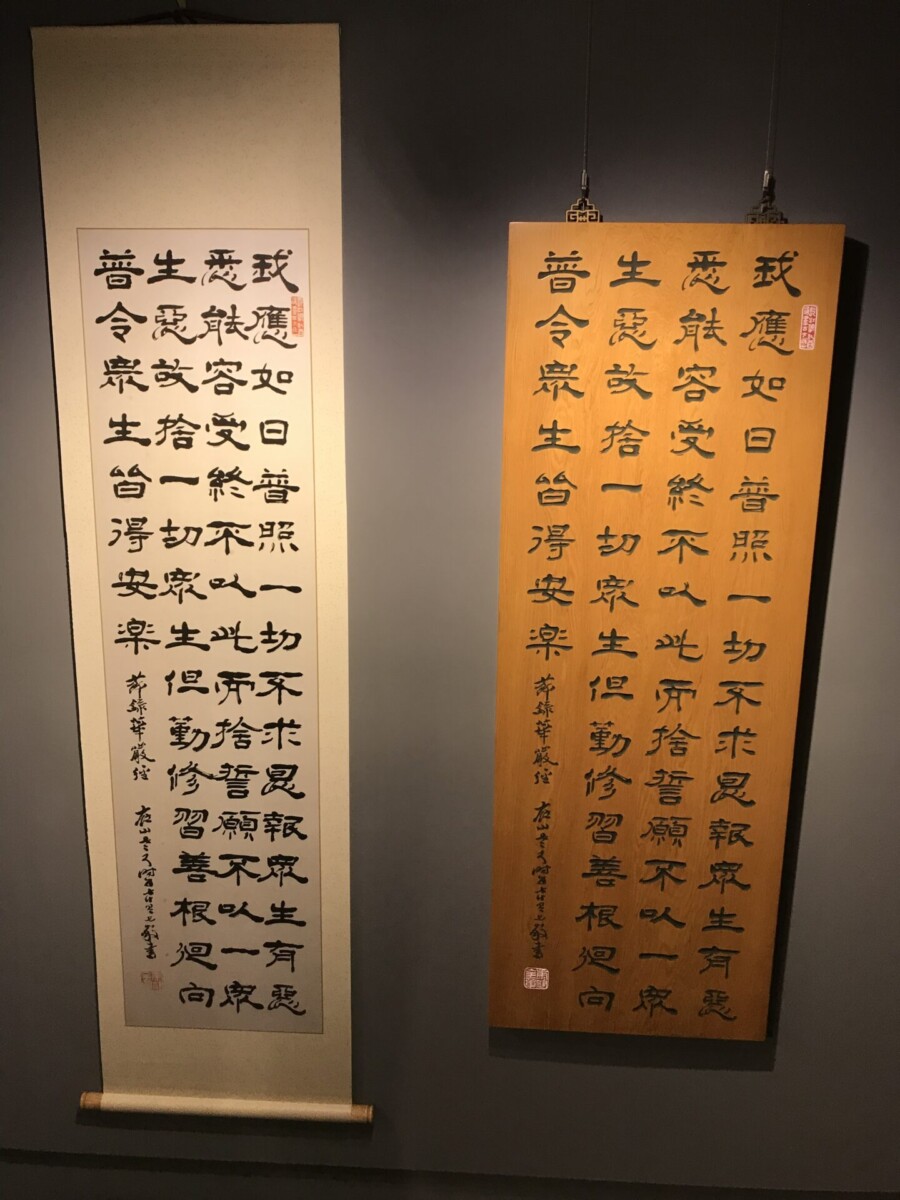 我應如日普照一切不求恩報眾生有惡
悉能容受終不以此而捨誓願不以一衆
生惡故捨一切衆生但勤修習善根迴向
普令衆生皆得安楽
節錄華嚴經
敬書
我應如日普照一切不求恩報眾生有惡
悉能容受終不以此而捨誓願不以一衆
生惡故捨一切衆生但勤修習善根迴向
普令衆生皆得安楽
節錄華嚴經
敬書